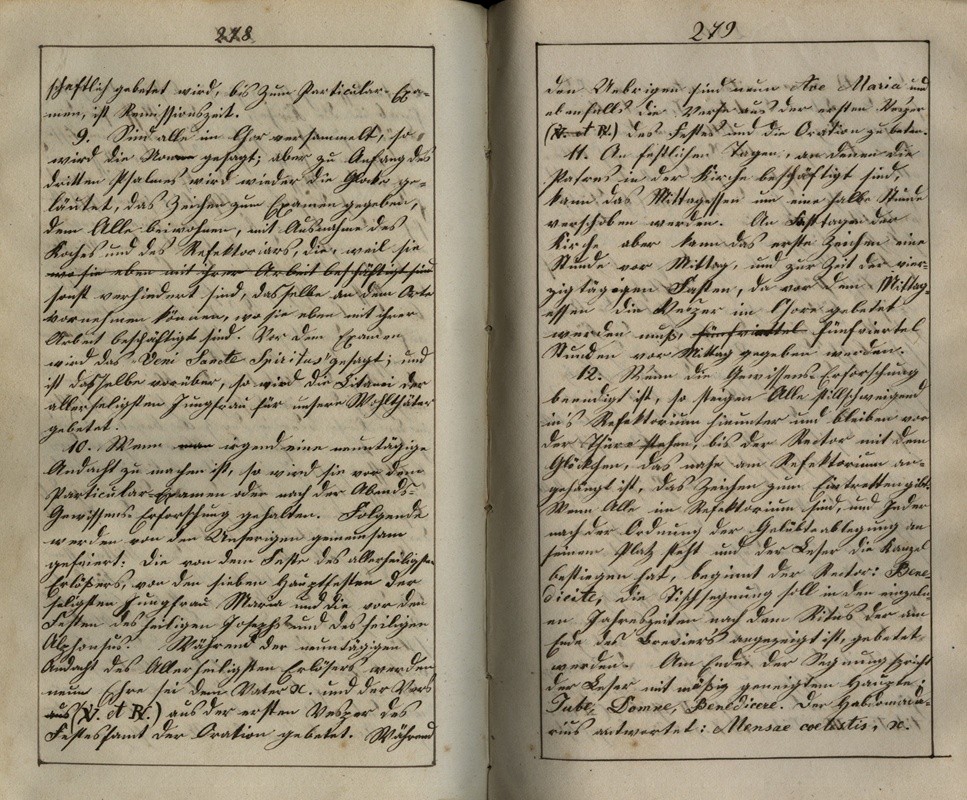 278
schaftlich gebetet wird, bis zum Particular-Exa-
men, ist Remissionszeit.
9. Sind alle im Chor versammelt, so
wird die Non gesagt; aber zu Anfang des
dritten Psalmes wird wieder die Glocke ge-
läutet, das Zeichen zum Examen gegeben,
dem Alle beiwohnen, mit Ausnahme des
Koches und des Refektoriars, die, weil sie
wo sie eben mit ihrer Arbeit beschäftigt sind
sonst verhindert sind, dasselbe an dem Orte
vornehmen können, wo sie eben mit ihrer
Arbeit beschäftigt sind. Vor dem Examen
wird das Veni Sancte Spiritus gesagt; und
ist dasselbe vorüber, so wird die Litanei der
allerseligsten Jungfrau für unsere Wohlthäter
gebetet.
10. Wenn irgend eine neuntägige
Andacht zu machen ist, so wird sie vor dem
Particular-Examen oder nach der Abend-
Gewissens-Erforschung gehalten. Folgende
werden von den Unserigen gemeinsam
gefeiert: Die vor dem Feste des allerheiligsten
Erlösers, von den sieben Hauptfesten der
seligsten Jungfrau Maria und die vor den
Festen des heiligen Josephs und des heiligen
Alphonsus. Während der neuntägigen
Andacht des Allerheiligsten Erlösers werden
neun Ehre sei dem Vater ꝛc. und der Vers
aus (V. et R.) aus der ersten Vesper des
Festes samt der Oration gebetet. Während
279
den Uebrigen sind neun Ave Maria und
ebenfalls die Verse aus der ersten Vesper
(V. et R.) des Festes und die Oration zu beten.
11. An festlichen Tagen, an denen die
Patres in der Kirche beschäftigt sind,
kann das Mittagessen um eine halbe Stunde
verschoben werden. An Fasttagen der
Kirche aber kann das erste Zeichen eine
Stunde vor Mittag, und zur Zeit der vier-
zigtägigen Fasten, da vor dem Mittag-
essen die Vesper im Chore gebetet
werden muß, fünfviertel fünfviertel
Stunden vor Mittag gegeben werden.
12. Wenn die Gewissens-Erforschung
beendigt ist, so steigen Alle stillschweigend
in's Refektorium hinunter und bleiben vor
der Thüre stehen, bis der Rector mit dem
Glöckchen, das nahe am Refektorium an-
gehängt ist, das Zeichen zum Eintretten gibt.
Wenn Alle im Refektorium sind, und Jeder
nach der Ordnung der Gelübdeablegung an
seinem Platz steht und der Leser die Kanzel
bestiegen hat, beginnt der Rector: Bene-
dicite, die Tischsegnung soll in den einzeln-
en Jahreszeiten nach dem Ritus der am
Ende des Breviers angezeigt ist, gebetet
werden. Am Ende der Segnung spricht
der Leser mit mäßig geneigtem Haupte:
Jube, Domne, Benedicere. Der Hebdomada-
rius antwortet: Mensae coelestis, ꝛc.